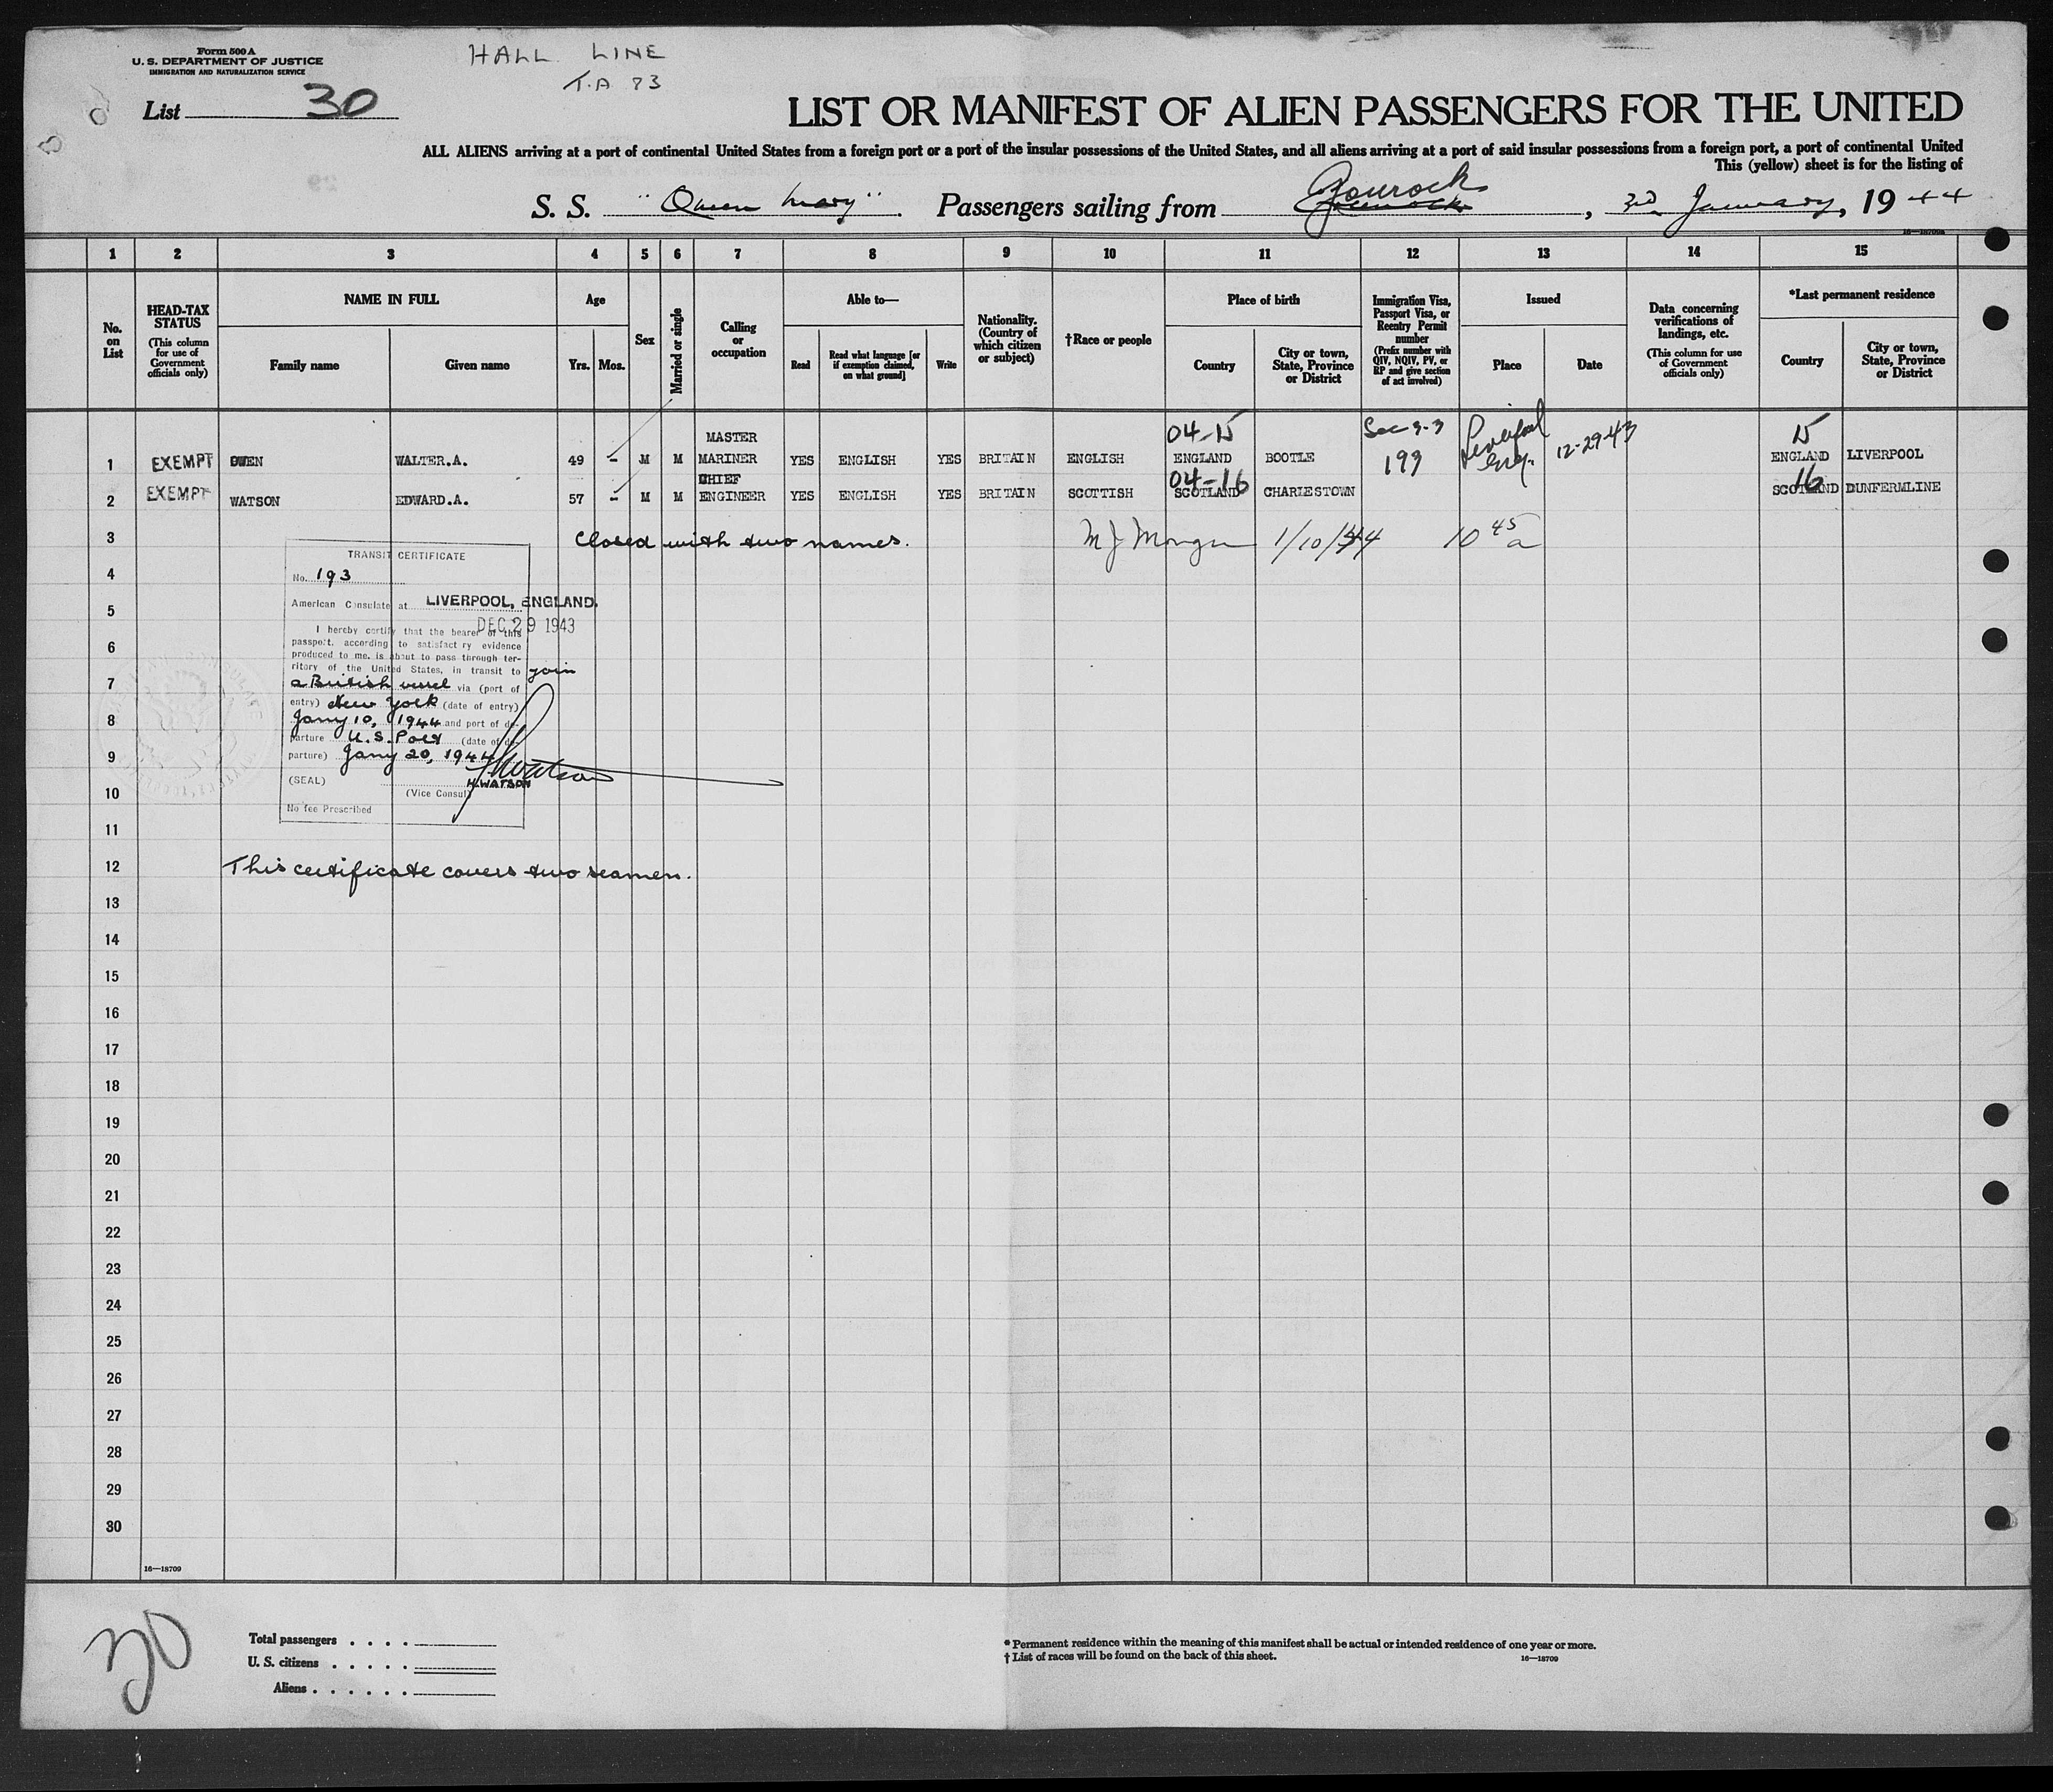 Form 500 A
U. S. DEPARTMENT OF JUSTICE
IMMIGRATION AND NATURALIZATION SERVICE
HALL LINE
T.A 73
List 30
LIST OR MANIFEST OF ALIEN PASSENGERS FOR THE UNITED
ALL ALIENS arriving at a port of continental United States from a foreign port or a port of the insular possessions of the United States, and all aliens arriving at a port of said insular possessions from a foreign port, a port of continental United
This (yellow) sheet is for the listing of
Gourock
S. S. "Queen Mary". Passengers sailing from Greenock, 3rd January, 19 44
16—18709a
1 2 3 4 5 6 7 8 9 10 11 12 13 14 15
No. on List
HEAD-TAX STATUS
(This column for use of Government officials only)
NAME IN FULL
Family name
Given name
Age
Yrs. Mos.
Sex
Married or single
Calling or occupation
Able to—
Read
Read what language [or if exemption claimed, on what ground]
Write
Nationality. (Country of which citizen or subject)
†Race or people
Place of birth
Country
City or town, State, Province or District
Immigration Visa, Passport Visa, or Reentry Permit number
(Prefix number with QIV, NQIV, PV, or RP and give section of act involved)
Issued
Place
Date
Data concerning verifications of landings, etc.
(This column for use of Government officials only)
*Last permanent residence
Country
City or town, State, Province or District
MASTER 04-15 Sec 3-3 Liverpool 12-29-43 15
1 EXEMPT OWEN WALTER.A. 49 - M M MARINER YES ENGLISH YES BRITAIN ENGLISH ENGLAND BOOTLE 193 Eng. ENGLAND LIVERPOOL
CHIEF 04-16 16
2 EXEMPT WATSON EDWARD.A. 57 - M M ENGINEER YES ENGLISH YES BRITAIN SCOTTISH SCOTLAND CHARLESTOWN SCOTLAND DUNFERMLINE
3 Closed with two names. M J Morgan 1/10/44 10 45 a
TRANSIT CERTIFICATE
4
No. 193
5
American Consulate at LIVERPOOL, ENGLAND.
DEC 29 1943
I hereby certify that the bearer of this
6
passport, according to satisfactory evidence
produced to me, is about to pass through ter-
ritory of the United States, in transit to join
7
a British vessel via (port of
entry) New York (date of entry)
8
Jany 10, 1944 and port of de-
parture U.S. Port (date of de-
9
parture) Jany 20, 1944
H Watson
(SEAL)
H.WATSON
10
(Vice Consul)
No fee Prescribed
11
12 This certificate covers two seamen.
13
14
15
16
17
18
19
20
21
22
23
24
25
26
27
28
29
30
16—18709
30
Total passengers . . . .
U. S. citizens . . . . .
Aliens . . . . . .
* Permanent residence within the meaning of this manifest shall be actual or intended residence of one year or more.
† List of races will be found on the back of this sheet.
16—18709